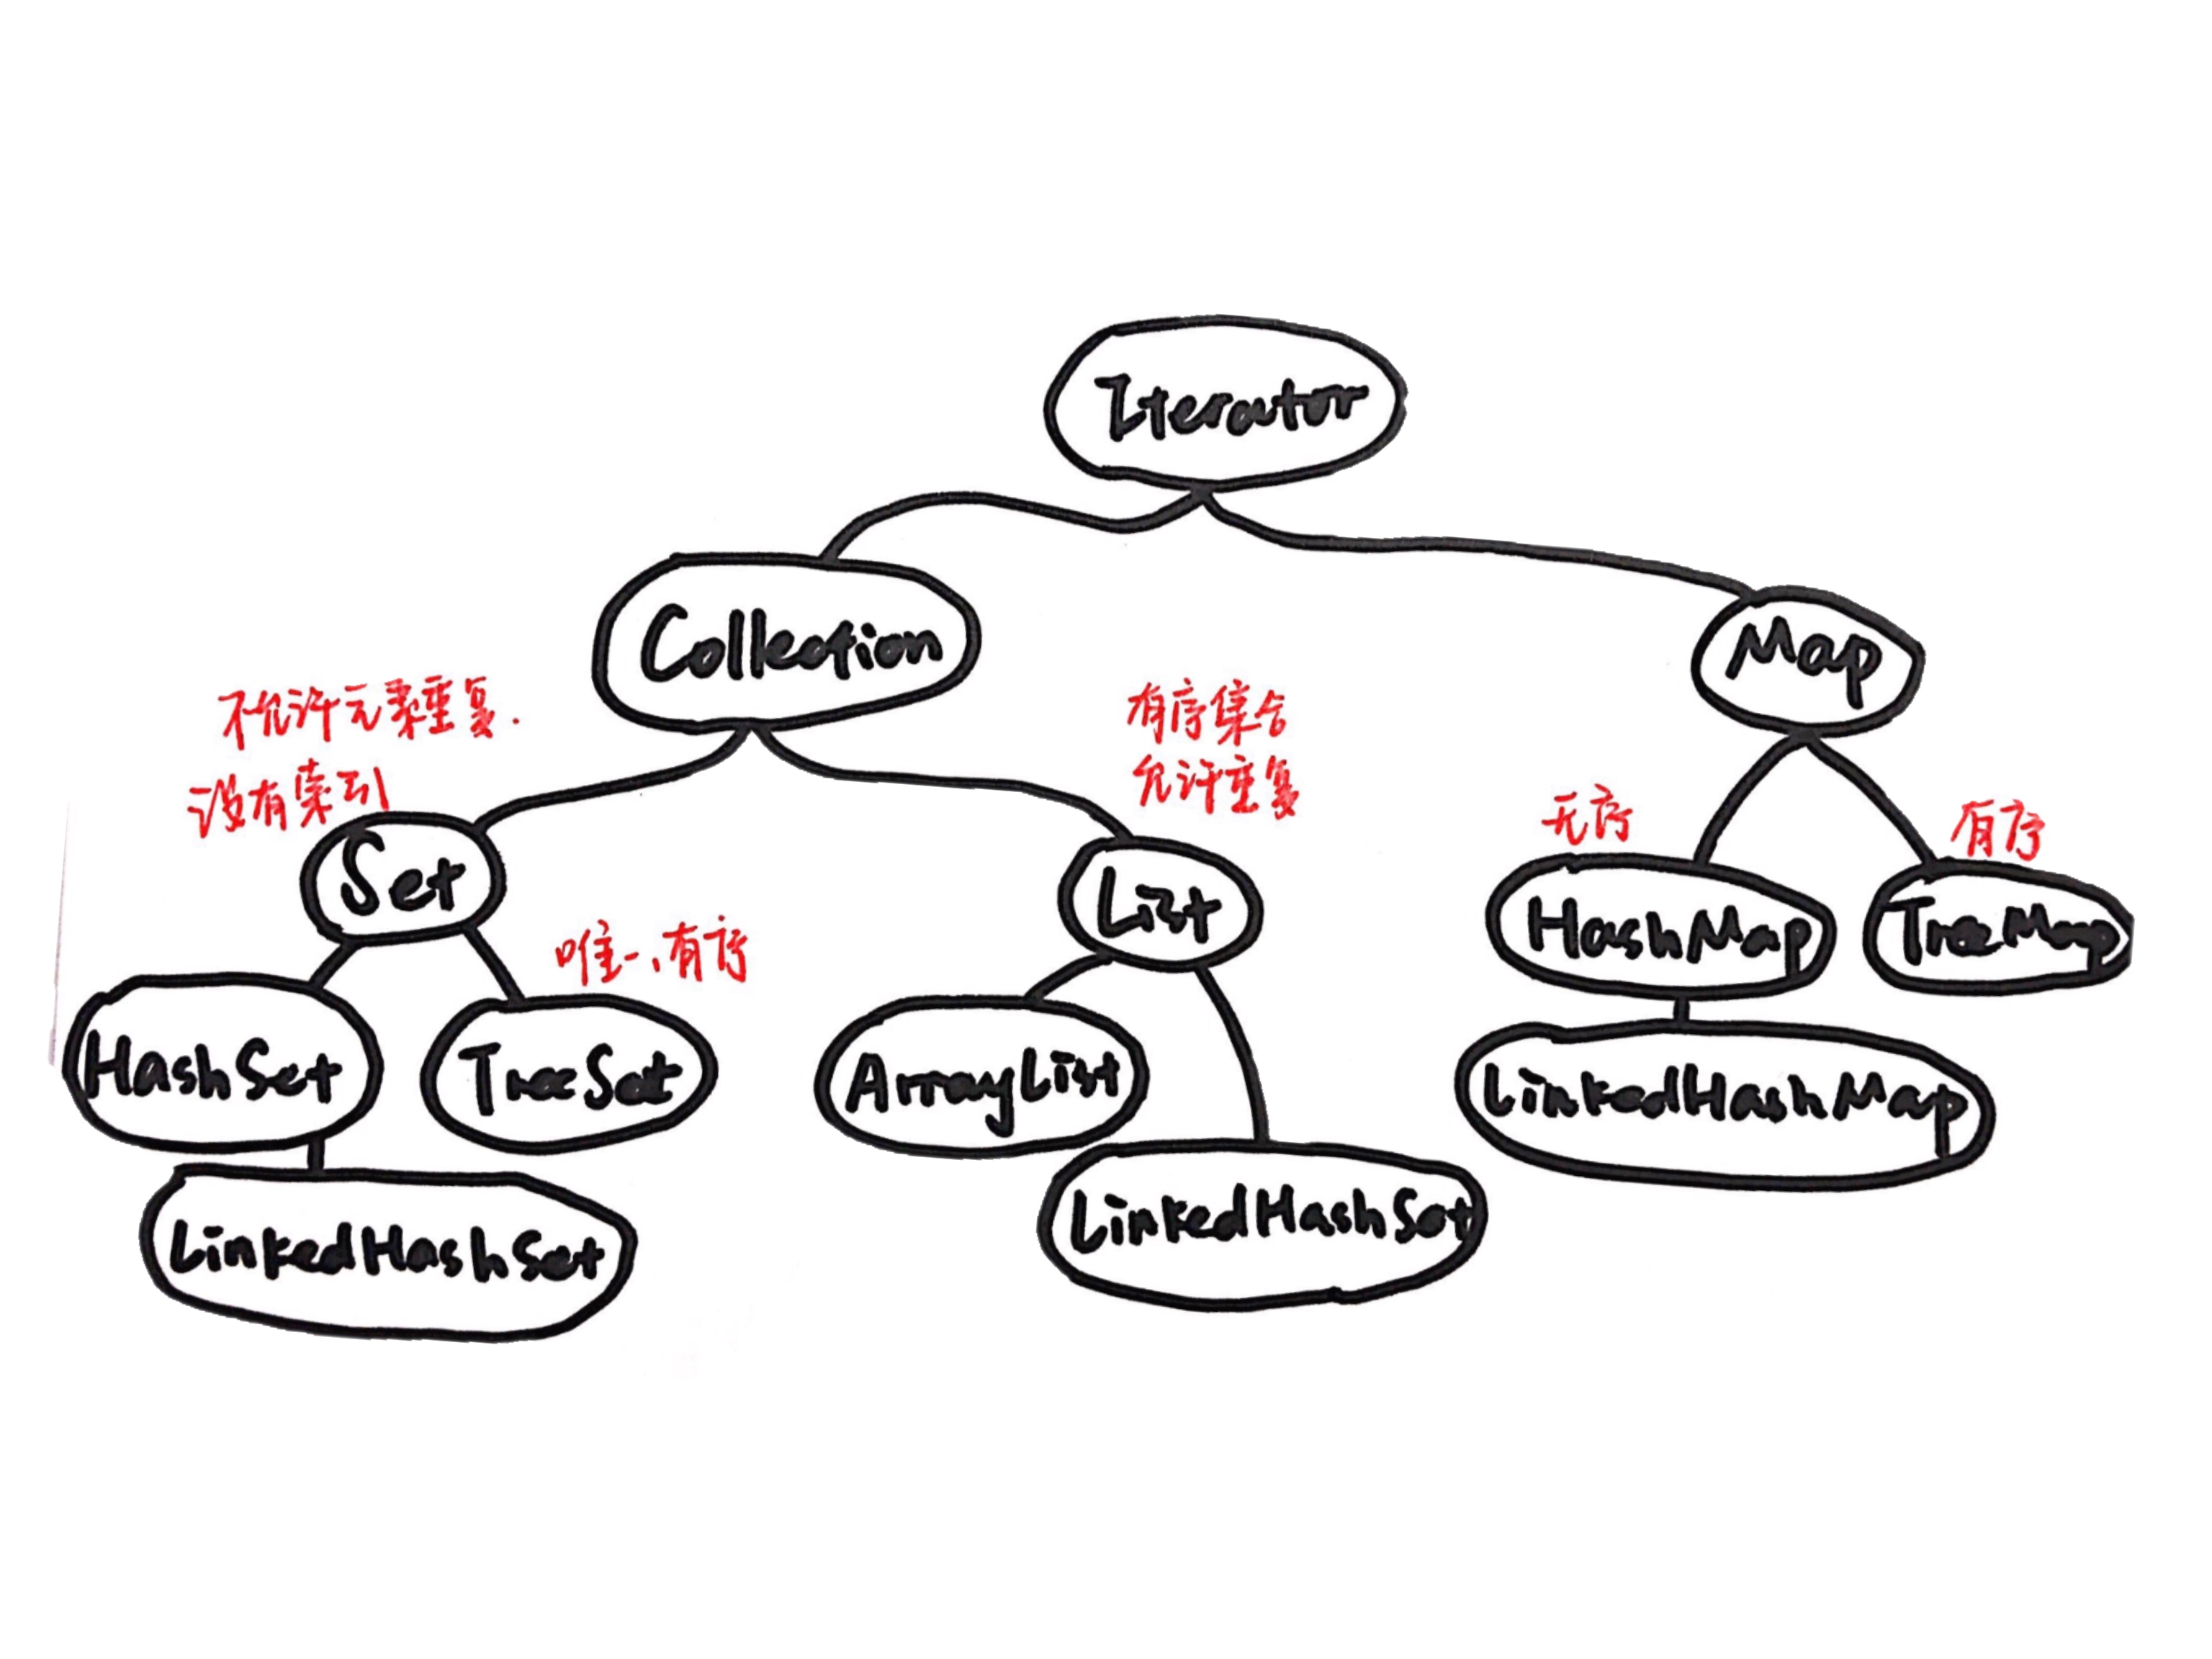 Iterator
Collection
Map
不允许元素重复.
没有索引
有序集合
允许重复
无序
有序
Set
List
HashMap
TreeMap
唯一、有序
HashSet
TreeSet
ArrayList
LinkedHashMap
LinkedHashSet
LinkedHashSet